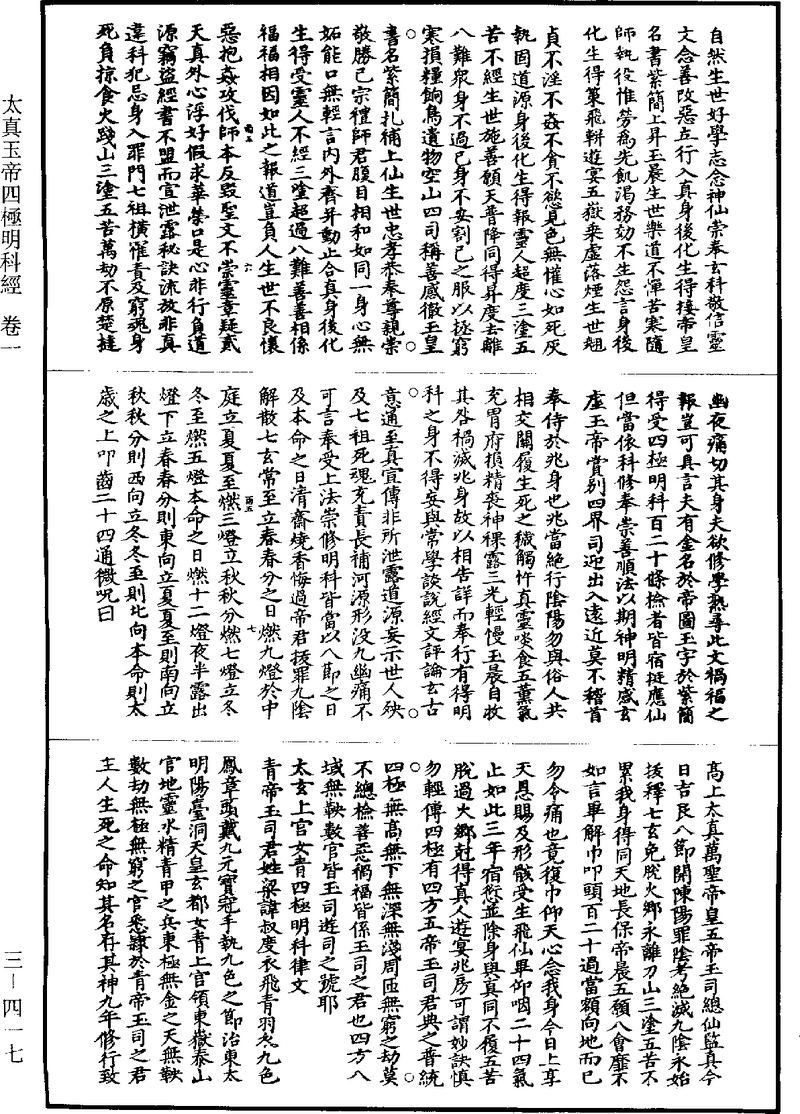 太真玉帝四極明科經 卷一
三—四一七
自然生世好學志念神仙崇奉玄科敬信靈
文念善改惡立行入真身後化生得接帝皇
名書紫簡上昇玉晨生世樂道不憚苦寒隨
師執役惟勞為先飢渴務効不生怨言身後
化生得策飛軿遊宴五嶽乘虛落煙生世翹
貞不淫不姦不貪不慾見色無懽心如死灰
執固道源身後化生得報靈人超度三塗五
苦不經生世施善願天普降同得昇度去離
八難眾身不過己身不安割己之服以拯窮
寒損糧餉鳥遺物空山四司稱善感徹玉皇
書名紫簡札補上仙生世忠孝恭奉尊親崇
敬勝己宗禮師君腹目相和如同一身心無
妬能口無輕言內外齊昇動止合真身後化
生得受靈人不經三塗超過八難善善相係
福福相因如此之報道豈負人生世不良懷
惡抱姦攻伐師本反毀聖文不崇靈章疑貳
天真外心浮好假求華榮口是心非行負道
源竊盜經書不盟而宣泄露祕訣流放非真
違科犯忌身入罪門七祖橫罹責及窮魂身
死負掠食火踐山三塗五苦萬劫不原楚撻
幽夜痛切其身夫欲修學熟尋此文禍福之
報豈可具言夫有金名於帝圖玉字於紫簡
得受四極明科百二十條檢者皆宿挺應仙
但當依科修奉崇善順法以期神明精感玄
虛玉帝賞別四界司迎出入遠近莫不稽首
奉侍於兆身也兆當絕行陰陽勿與俗人共
相交關履生死之穢觸忤真靈啖食五薰氣
充胃府損精喪神裸露三光輕慢玉晨自收
其咎禍滅兆身故以相告詳而奉行有得明
科之身不得妄與常學談說經文評論玄古
意通至真宣傳非所泄露道源妄示世人殃
及七祖死魂充責長補河源形沒九幽痛不
可言奉受上法崇修明科皆當以八節之日
及本命之日清齋燒香悔過帝君拔罪九陰
解散七玄常至立春春分之日燃九燈於中
庭立夏夏至燃三燈立秋秋分燃七燈立冬
冬至燃五燈本命之日燃十二燈夜半露出
燈下立春春分則東向立夏夏至則南向立
秋秋分則西向立冬冬至則北向本命則太
歲之上叩齒二十四通微呪曰
高上太真萬聖帝皇五帝玉司總仙監真今
日吉辰八節開陳陽罪陰考絕滅九陰永始
拔釋七玄免脫火鄉永離刀山三塗五苦不
累我身得同天地長保帝晨五願八會靡不
如言畢解巾叩頭百二十過當額向地而已
勿令痛也竟復巾仰天心念我身今日上享
天恩賜反形骸受生飛仙畢仰咽二十四氣
止如此三年宿愆並除身與真同不復五苦
脫過火鄉剋得真人遊宴兆房可謂妙訣慎
勿輕傳四極有四方五帝玉司君典之普統
四極無高無下無深無淺周匝無窮之劫莫
不總檢善惡禍福皆係玉司之君也四方八
域無鞅數官皆玉司遊司之號耶
太玄上官女青四極明科律文
青帝玉司君姓梁諱叔度衣飛青羽衣九色
鳳章頭戴九元寶冠手執九色之節治東太
明陽臺洞天皇玄都女青上官領東嶽泰山
官地靈水精青甲之兵東極無金之天無鞅
數劫無極無窮之官悉隸於青帝玉司之君
主人生死之命知其名存其神九年修行致